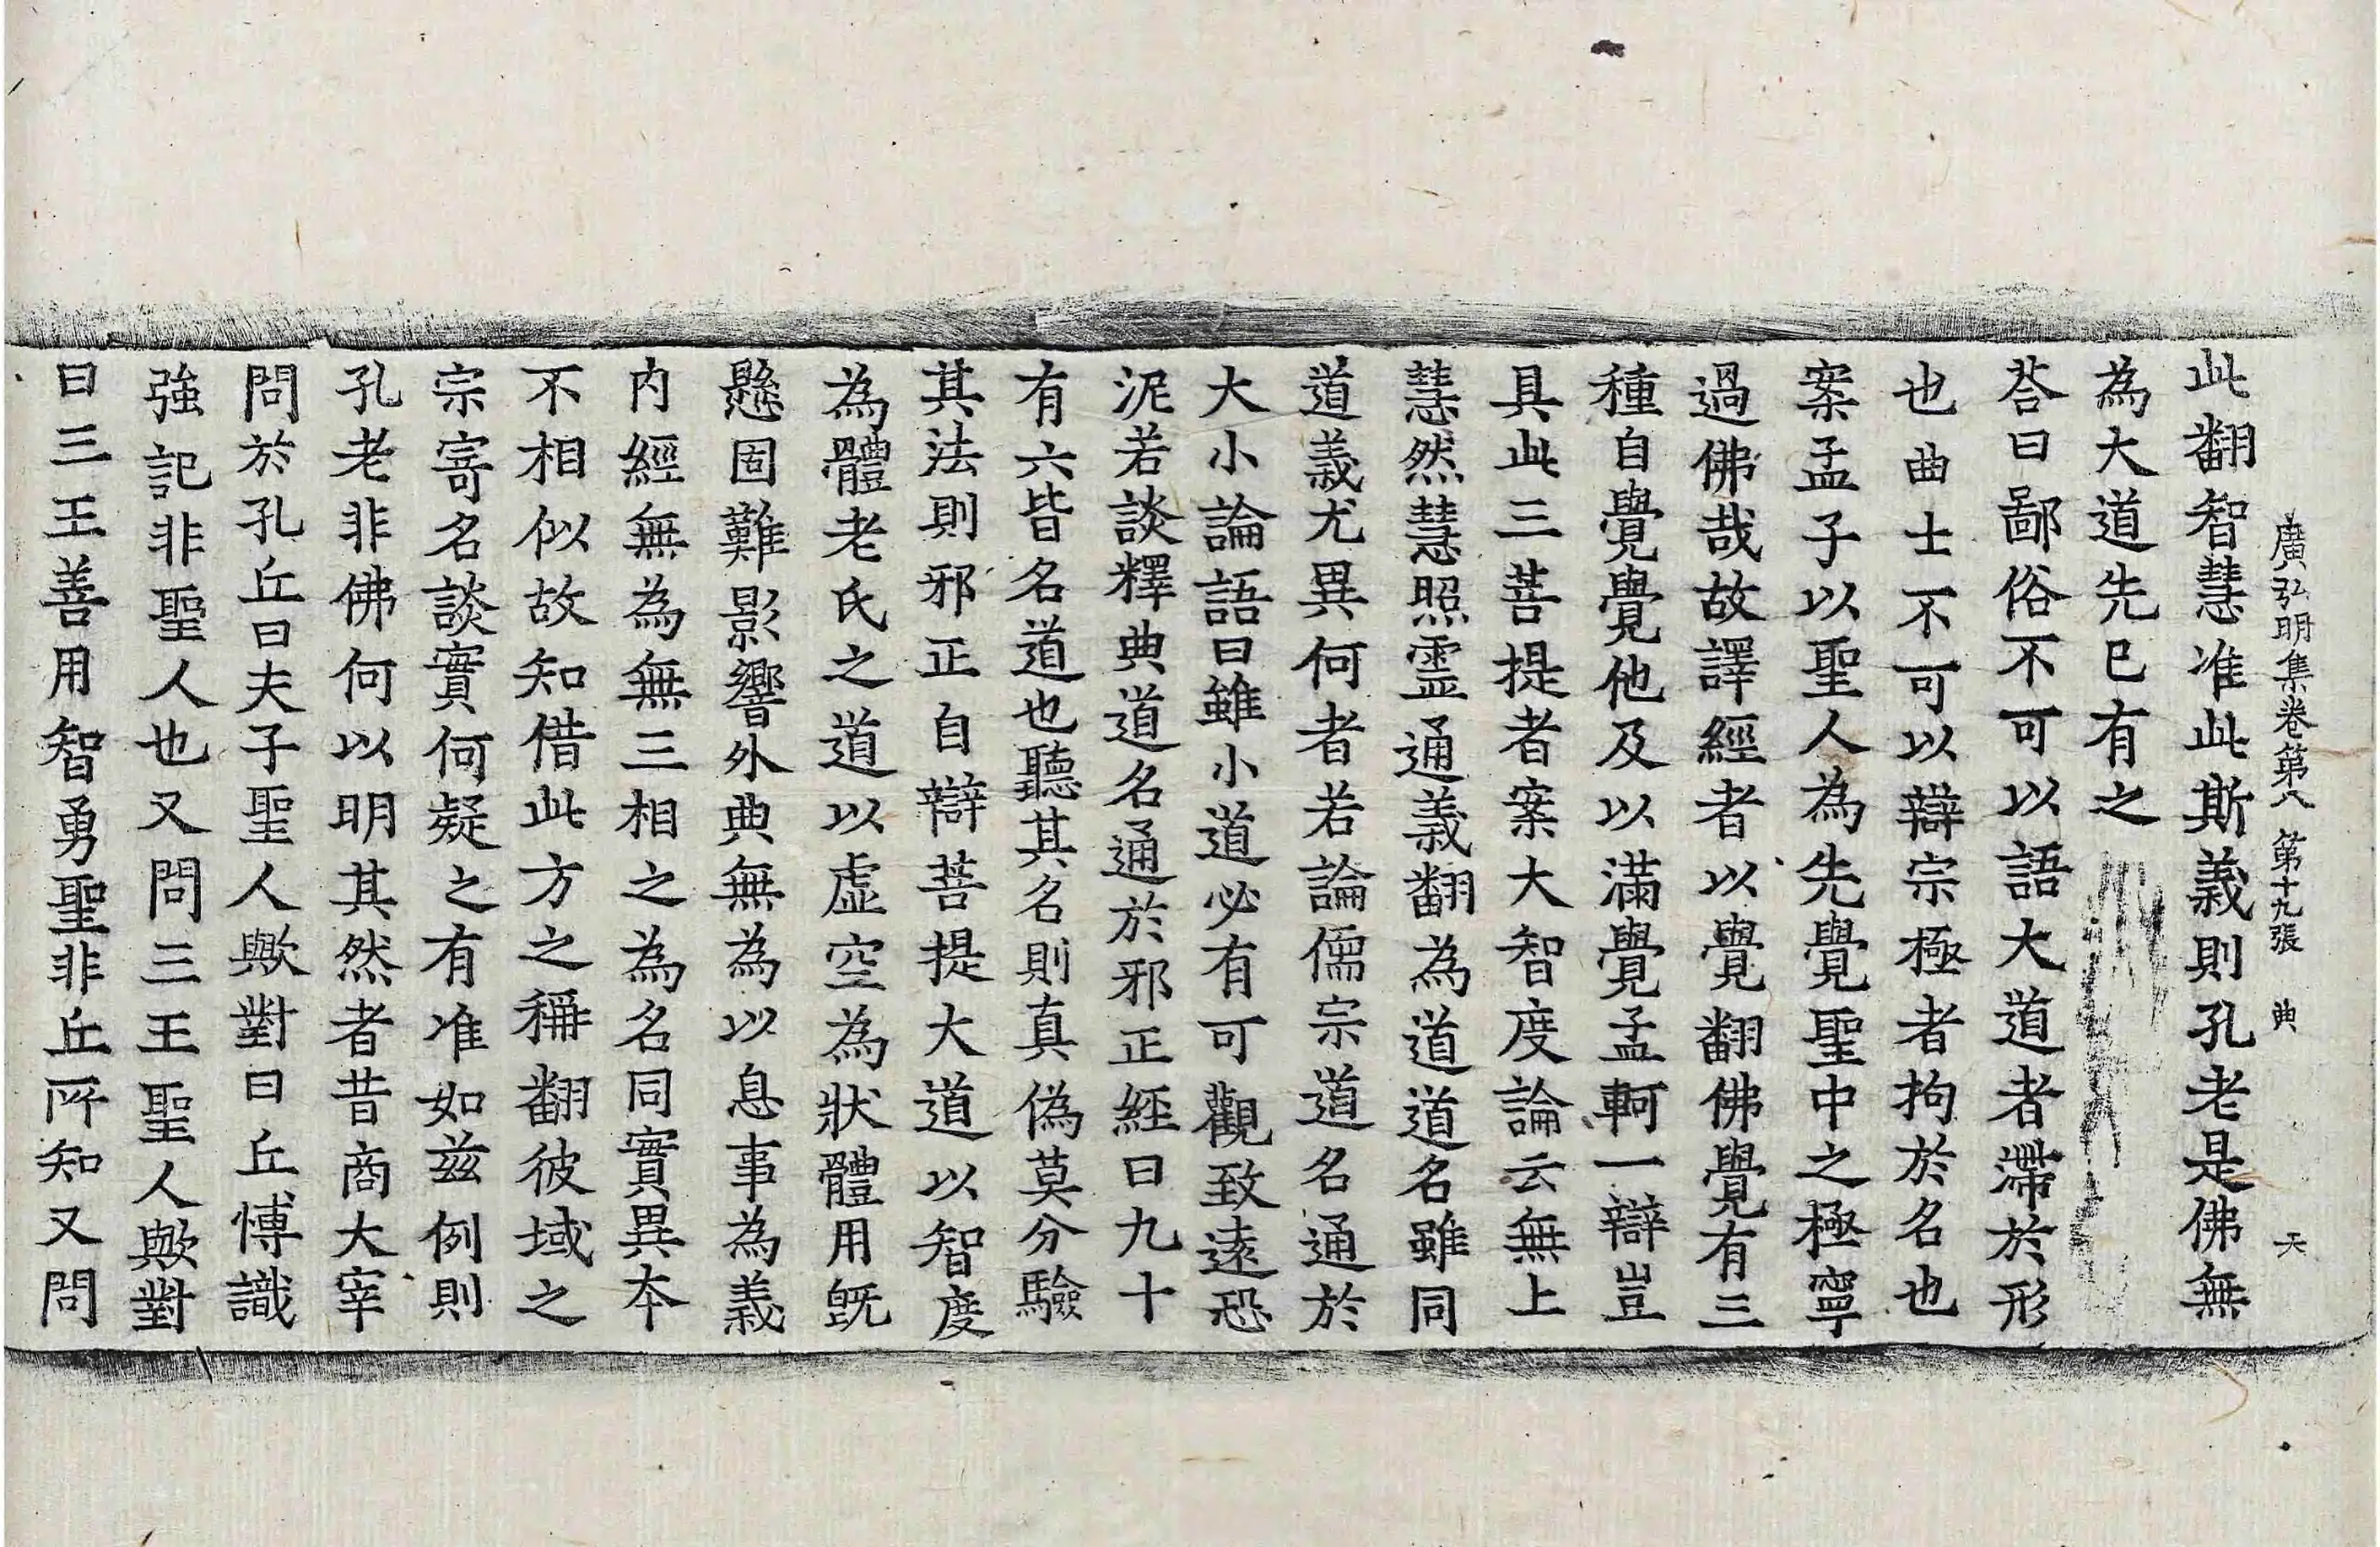 廣弘明集卷第八 第十九張 典 天
此翻智慧准此斯義則孔老是佛無
為大道先已有之
荅曰鄙俗不可以語大道者滯於形
也曲士不可以辯宗極者拘於名也
案孟子以聖人為先覺聖中之極寧
過佛哉故譯經者以覺翻佛覺有三
種自覺覺他及以滿覺孟軻一辯豈
具此三菩提者案大智度論云無上
慧然慧照靈通義翻為道道名雖同
道義尤異何者若論儒宗道名通於
大小論語曰雖小道必有可觀致遠恐
泥若談釋典道名通於邪正經曰九十
有六皆名道也聽其名則真偽莫分驗
其法則邪正自辯菩提大道以智度
為體老氏之道以虛空為狀體用既
懸固難影響外典無為以息事為義
內經無為無三相之為名同實異本
不相似故知借此方之稱翻彼域之
宗寄名談實何疑之有准如茲例則
孔老非佛何以明其然者昔商大宰
問於孔丘曰夫子聖人歟對曰丘博識
強記非聖人也又問三王聖人歟對
曰三王善用智勇聖非丘所知又問